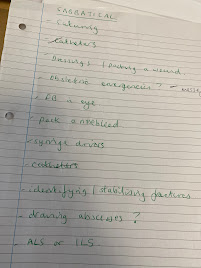 SABBATICAL
- Suturing
- Catheters
- Dressings / packing a wound.
- Obstetric emergencies? -
- FB in eye
- pack a nosebleed
- syringe drivers
- catheters
- identifying / stabilising fractures
- draining abscesses?
- ALS or ILS.